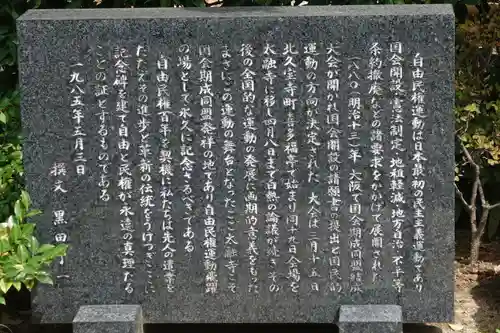 自由民権運動は日本最初の民主主義運動であり
国会開設・憲法制定、地租軽減、地方自治、不平等
条約撤廃などの諸要求をかかげて展開された
一八八〇(明治十三)年、大阪で国会期成同盟結成
大会が開かれ国会開設の請願書の提出と国民的
運動の方向が決定された。大会は三月十五日
北久宝寺町の喜多福亭で始まり同十九日会場を
太融寺に移し四月八日まで白熱の論議が続き、その
後の全国的な運動の発展に画期的意義をもった
まさにこの運動の舞台となったここ太融寺こそ
国会期成同盟発祥の地であり自由民権運動飛躍
の場として永久に記念さるべきである
自由民権百年を契機に私たちは先人の遺業を
たたえその進歩と革新の伝統をうけつぎここに
記念碑を建て自由と民権が永遠の真理たる
ことの証とするものである
一九八五年五月三日
撰文 黒田 一